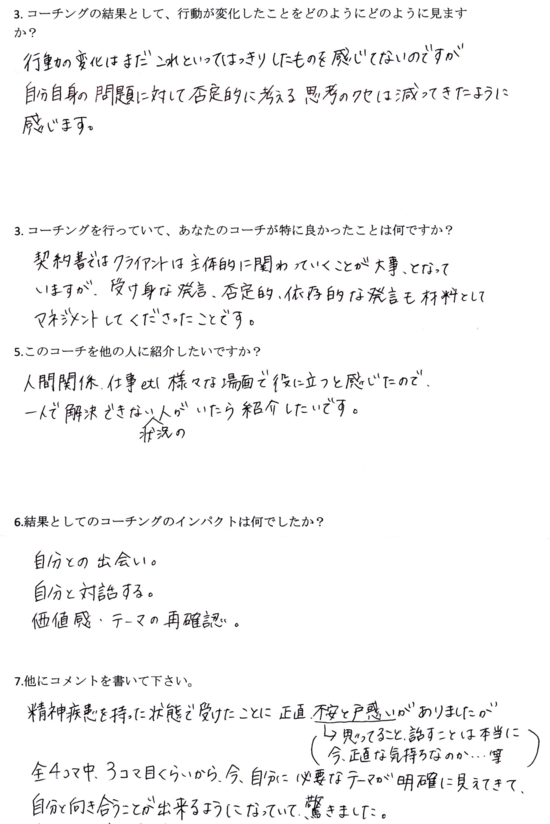 3. コーチングの結果として、行動が変化したことをどのようにどのように見ます
か？
行動の変化はまだこれといってはっきりしたものを感じてないのですが
自分自身の問題に対して否定的に考える思考のクセは減ってきたように
感じます。
3. コーチングを行っていて、あなたのコーチが特に良かったことは何ですか？
契約書ではクライアントは主体的に関わっていくことが大事、となって
いますが、受け身な発言、否定的、依存的な発言も材料として
マネジメントしてくださったことです。
5.このコーチを他の人に紹介したいですか？
人間関係、仕事etc 様々な場面で役に立つと感じたので、
一人で解決できない人がいたら紹介したいです。
状況の
6.結果としてのコーチングのインパクトは何でしたか？
自分との出会い。
自分と対話する。
価値感・テーマの再確認。
7.他にコメントを書いて下さい。
精神疾患を持った状態で受けたことに正直、不安と戸惑いがありましたが
↳思ってること、話すことは本当に
今、正直な気持ちなのか…等
全4コマ中、3コマ目くらいから、今、自分に必要なテーマが明確に見えてきて、
自分と向き合うことが出来るようになっていて、驚きました。